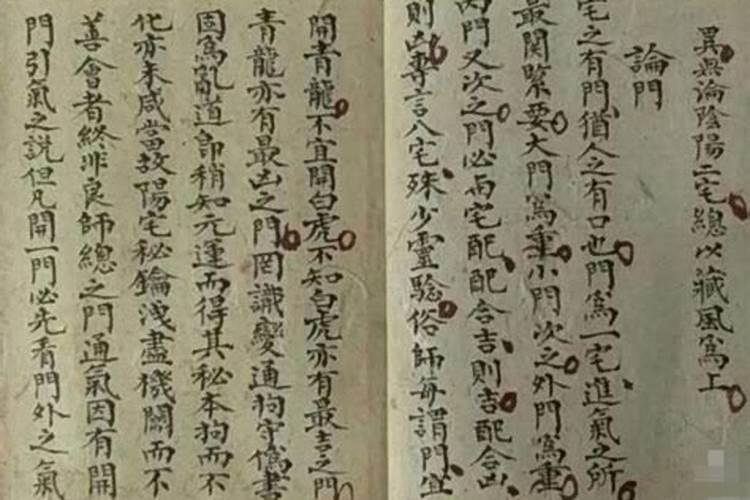 異無論陰陽二宅總以藏風爲上
論門
宅之有門猶人之有口也門爲一宅進氣之所
最関緊要大門爲重小門次之外門爲重
内門又次之門必而宅配配合吉則吉配合凶
則凶專言八宅殊少靈驗俗師每謂門宜
開青龍不宜開白虎不知白虎亦有最吉之門
青龍亦有最凶之門罔識變通拘守僞書
因爲乱道即稍知元運而得其秘本拘而不
化亦未咸當故陽宅秘鑰洩盡機關而不
善會者終非良師總之門通氣因有開
門引氣之説但凡開一門必先看門外之氣